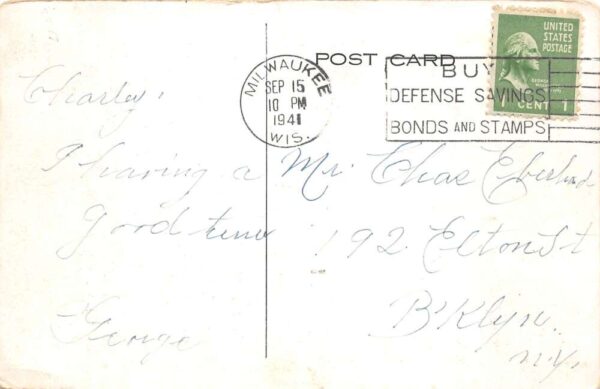 POST CARD
MILWAUKEE
SEP 15
10 PM
1941
WIS.
BUY
DEFENSE SAVINGS
BONDS AND STAMPS
UNITED
STATES
POSTAGE
1 CENT 1
Charley,
I having a
good time
George
Mr. Chas
192 Elton St
B'Klyn.
N.Y.